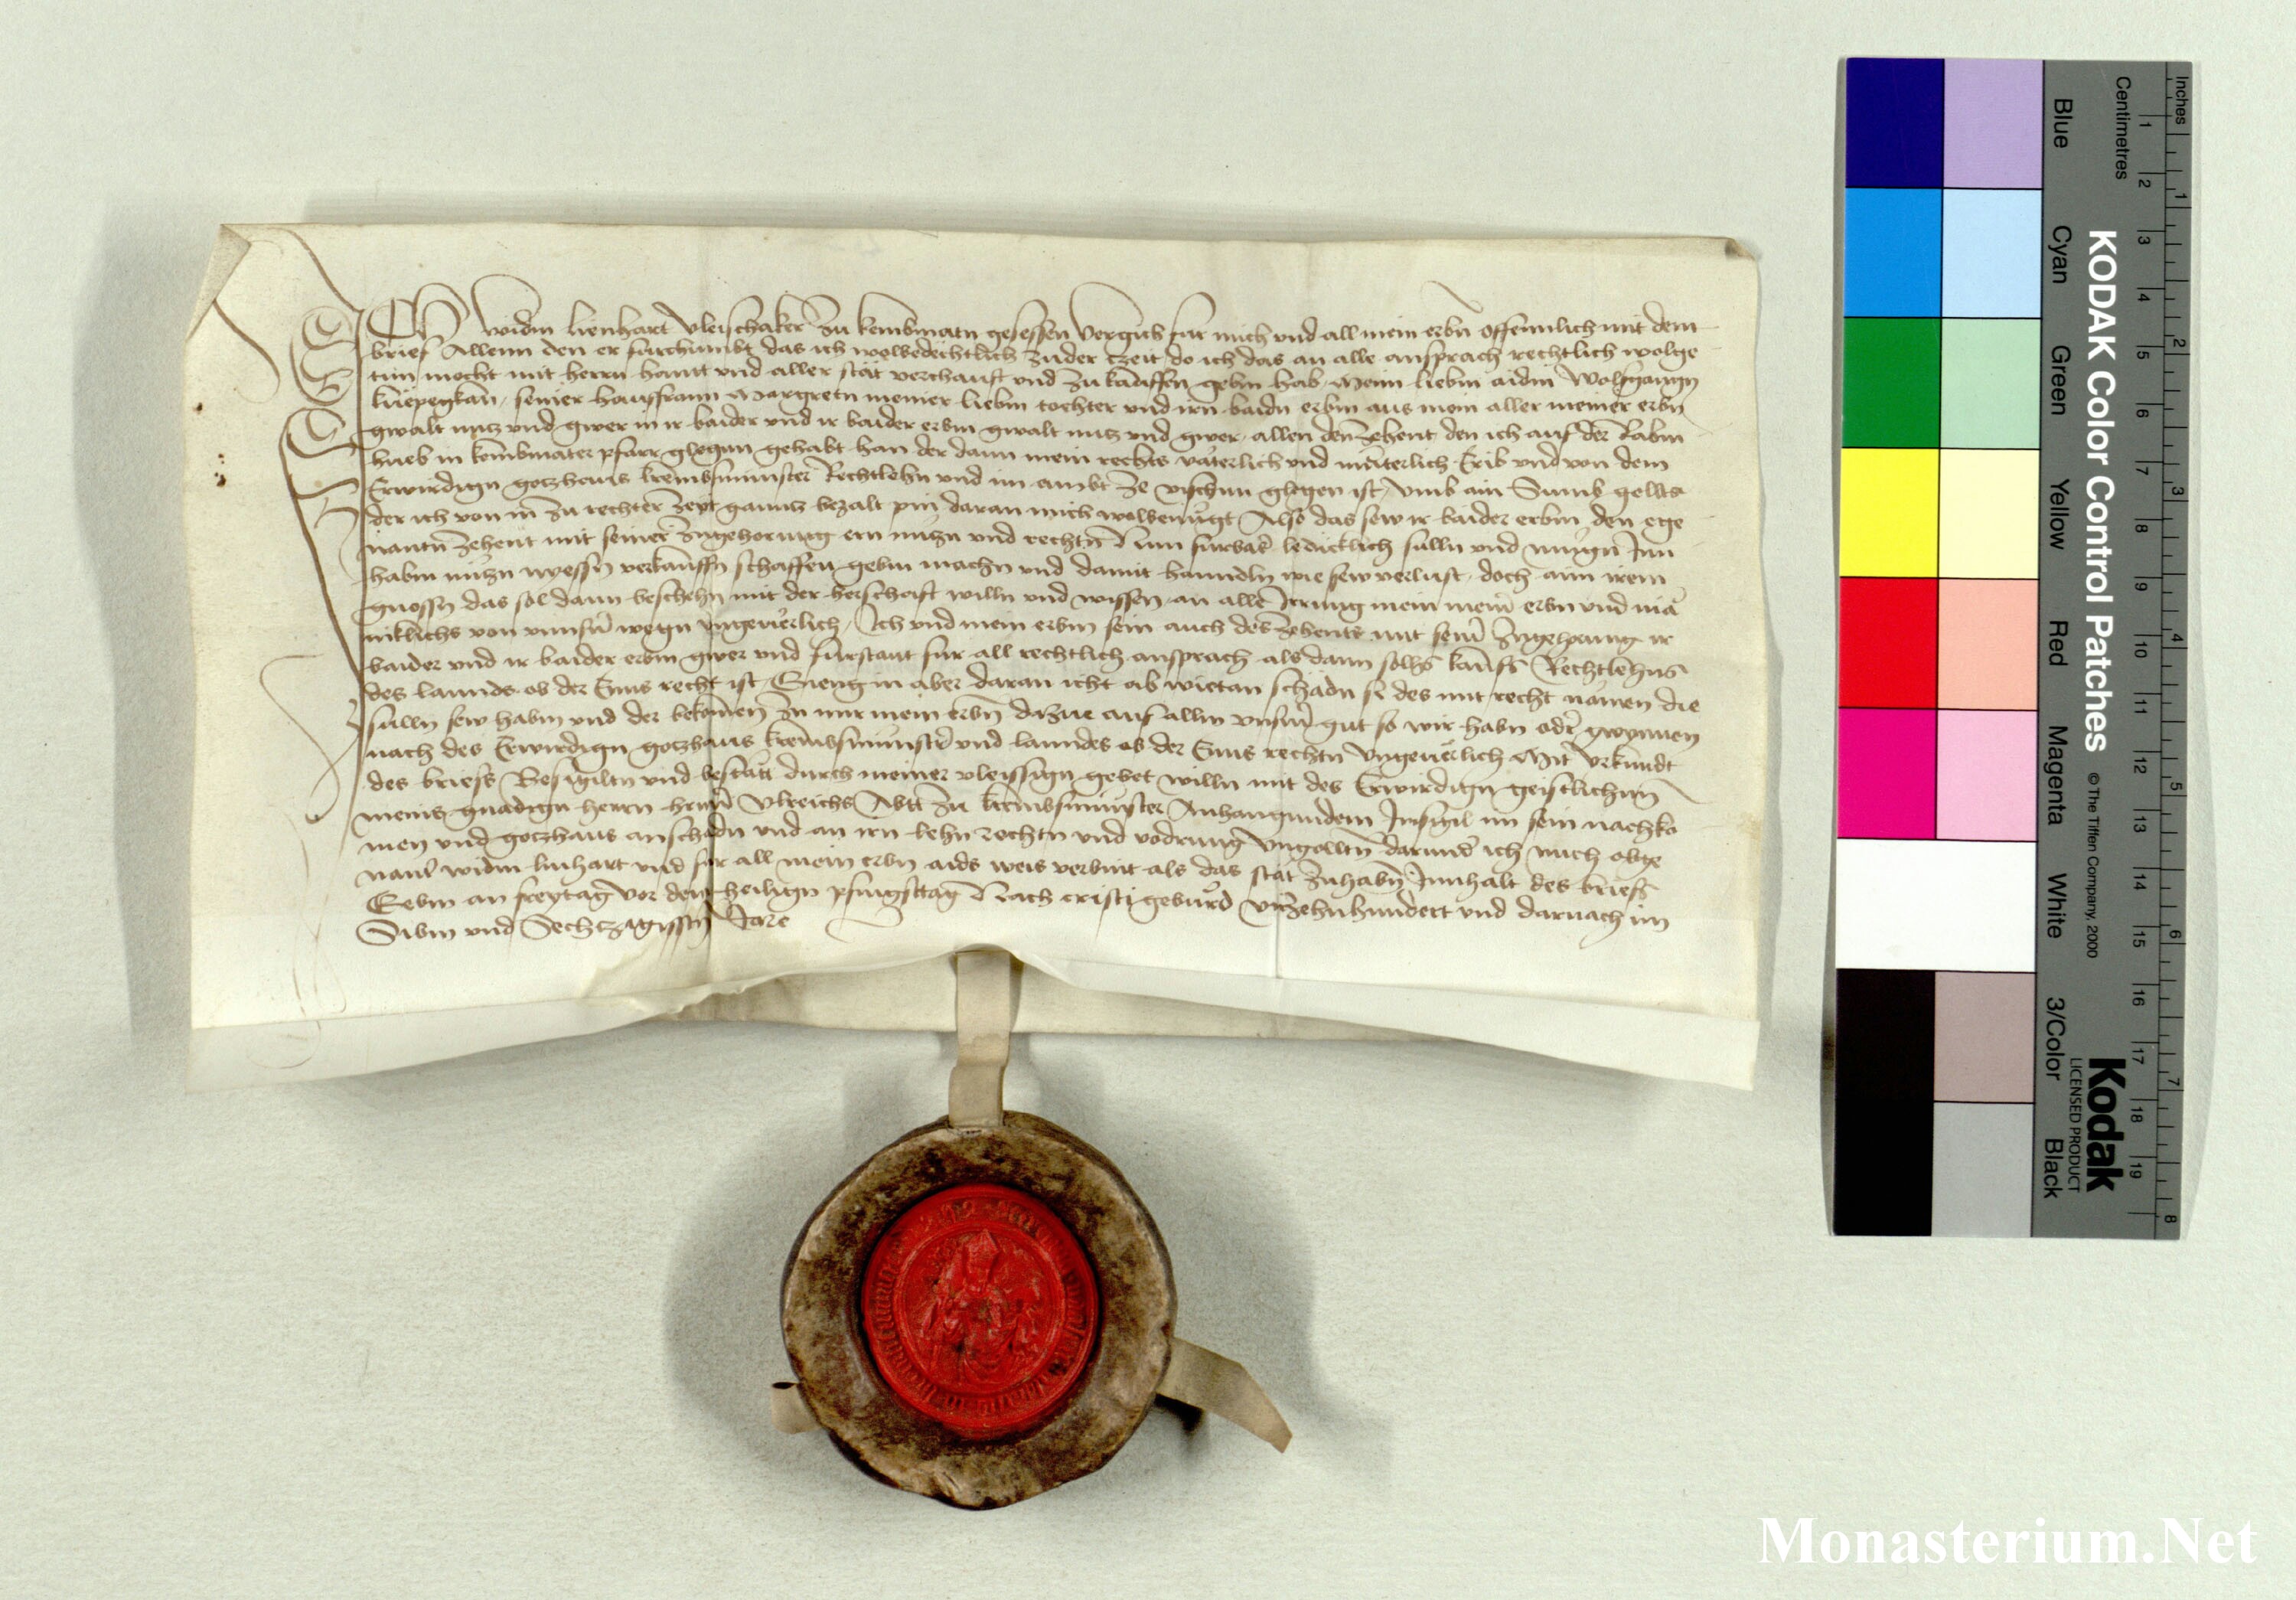 Ich widm lienhart vleischaker zu kembmatn gesessen vergich fur mich und all mein erbn offennlich mit dem
brief Allenn den er furchumbt das ich wolbedechtlich zu der czeit do ich das an alle ansprach rechtlich wolge
tun mocht mit herrn hannt und aller stat verchauft und zu kauffen gebm hab Meim liebm aidm Wolfgangn
seiner hausfraun Margretn meiner liebm tochter und irn baidn erbm aus mein aller meiner erbn
gwalt nutz und gwer in ir baider und ir baider erbm gwalt nutz und gwer allen den zehent den ich auf der
hueb in kembmater pfarr glegnn gehabt han der dann mein rechts väterlich und müterlich Erib und von dem
Erwirdign gotzhaus krembsmünster Rechtlehn und im ambt ze glegen ist umb ain Sumb gellts
der ich von in zu rechter zeyt gannz bezalt pin daran mich wolbenügt Also das sew ir baider erbm den ege
nantn zehent mit seiner zugehorung ern nuzn und rechtn Nun furbas ledicklich sulln und mugn Inn
habm nuzn nyessn verkauffn schaffen gebm machn und damit hanndln wie sew verlust doch aim irem
gnossn das sol dann beschehn mit der herschaft willn und wissen an alle Irrung mein meiner erbn und
niklichs von unnsern wegn ungeuerlich Ich und mein erbm sein auch des zehents mit seiner zugehorung ir
baider und ir baider erbm gwer und furstant fur all rechtlich ansprach als dann solhs kaufs Rechtlehns
des lannds ob der Enns recht ist Gieng in aber daran icht ab wietan schadn si des mit recht nämen die
sulln sew habm und der bekomen zu mir mein erbn dazue auf allm unserm gut so wir habn oder gwynnen
nach des Erwirdign gotzhaus krembsmünster und lanndes ob der Enns rechtn ungeuerlich Mit urkundt
des briefs Besigiltn und bestätt durch meiner vleissign gebet willn mit des Erwirdign geistlichnn
meins gnädign herrn herrn Ulreichs Abtt zu krembsmünster Anhangundem Insigil im sein nachko
men und gotzhaus an schadn und an irn lehn rechtn und vodrung ungolltn darunder ich mich obge
nant widm linhart und fur all mein erbn aids weis verbint als das stät zu habn Innhalt des briefs
Gebm an freytag vor dem heilign pfingsttag Nach cristi geburd virzehnhundert und darnach im
Sibm und Sechtzigissm Jare
KODAK Color Control Patches © The Tiffen Company, 2000 Kodak LICENSED PRODUCT
Inches 1 2 3 4 5 6 7 8
Centimetres 1 2 3 4 5 6 7 8 9 10 11 12 13 14 15 16 17 18 19
Blue Cyan Green Yellow Red Magenta White 3/Color Black
Monasterium.Net